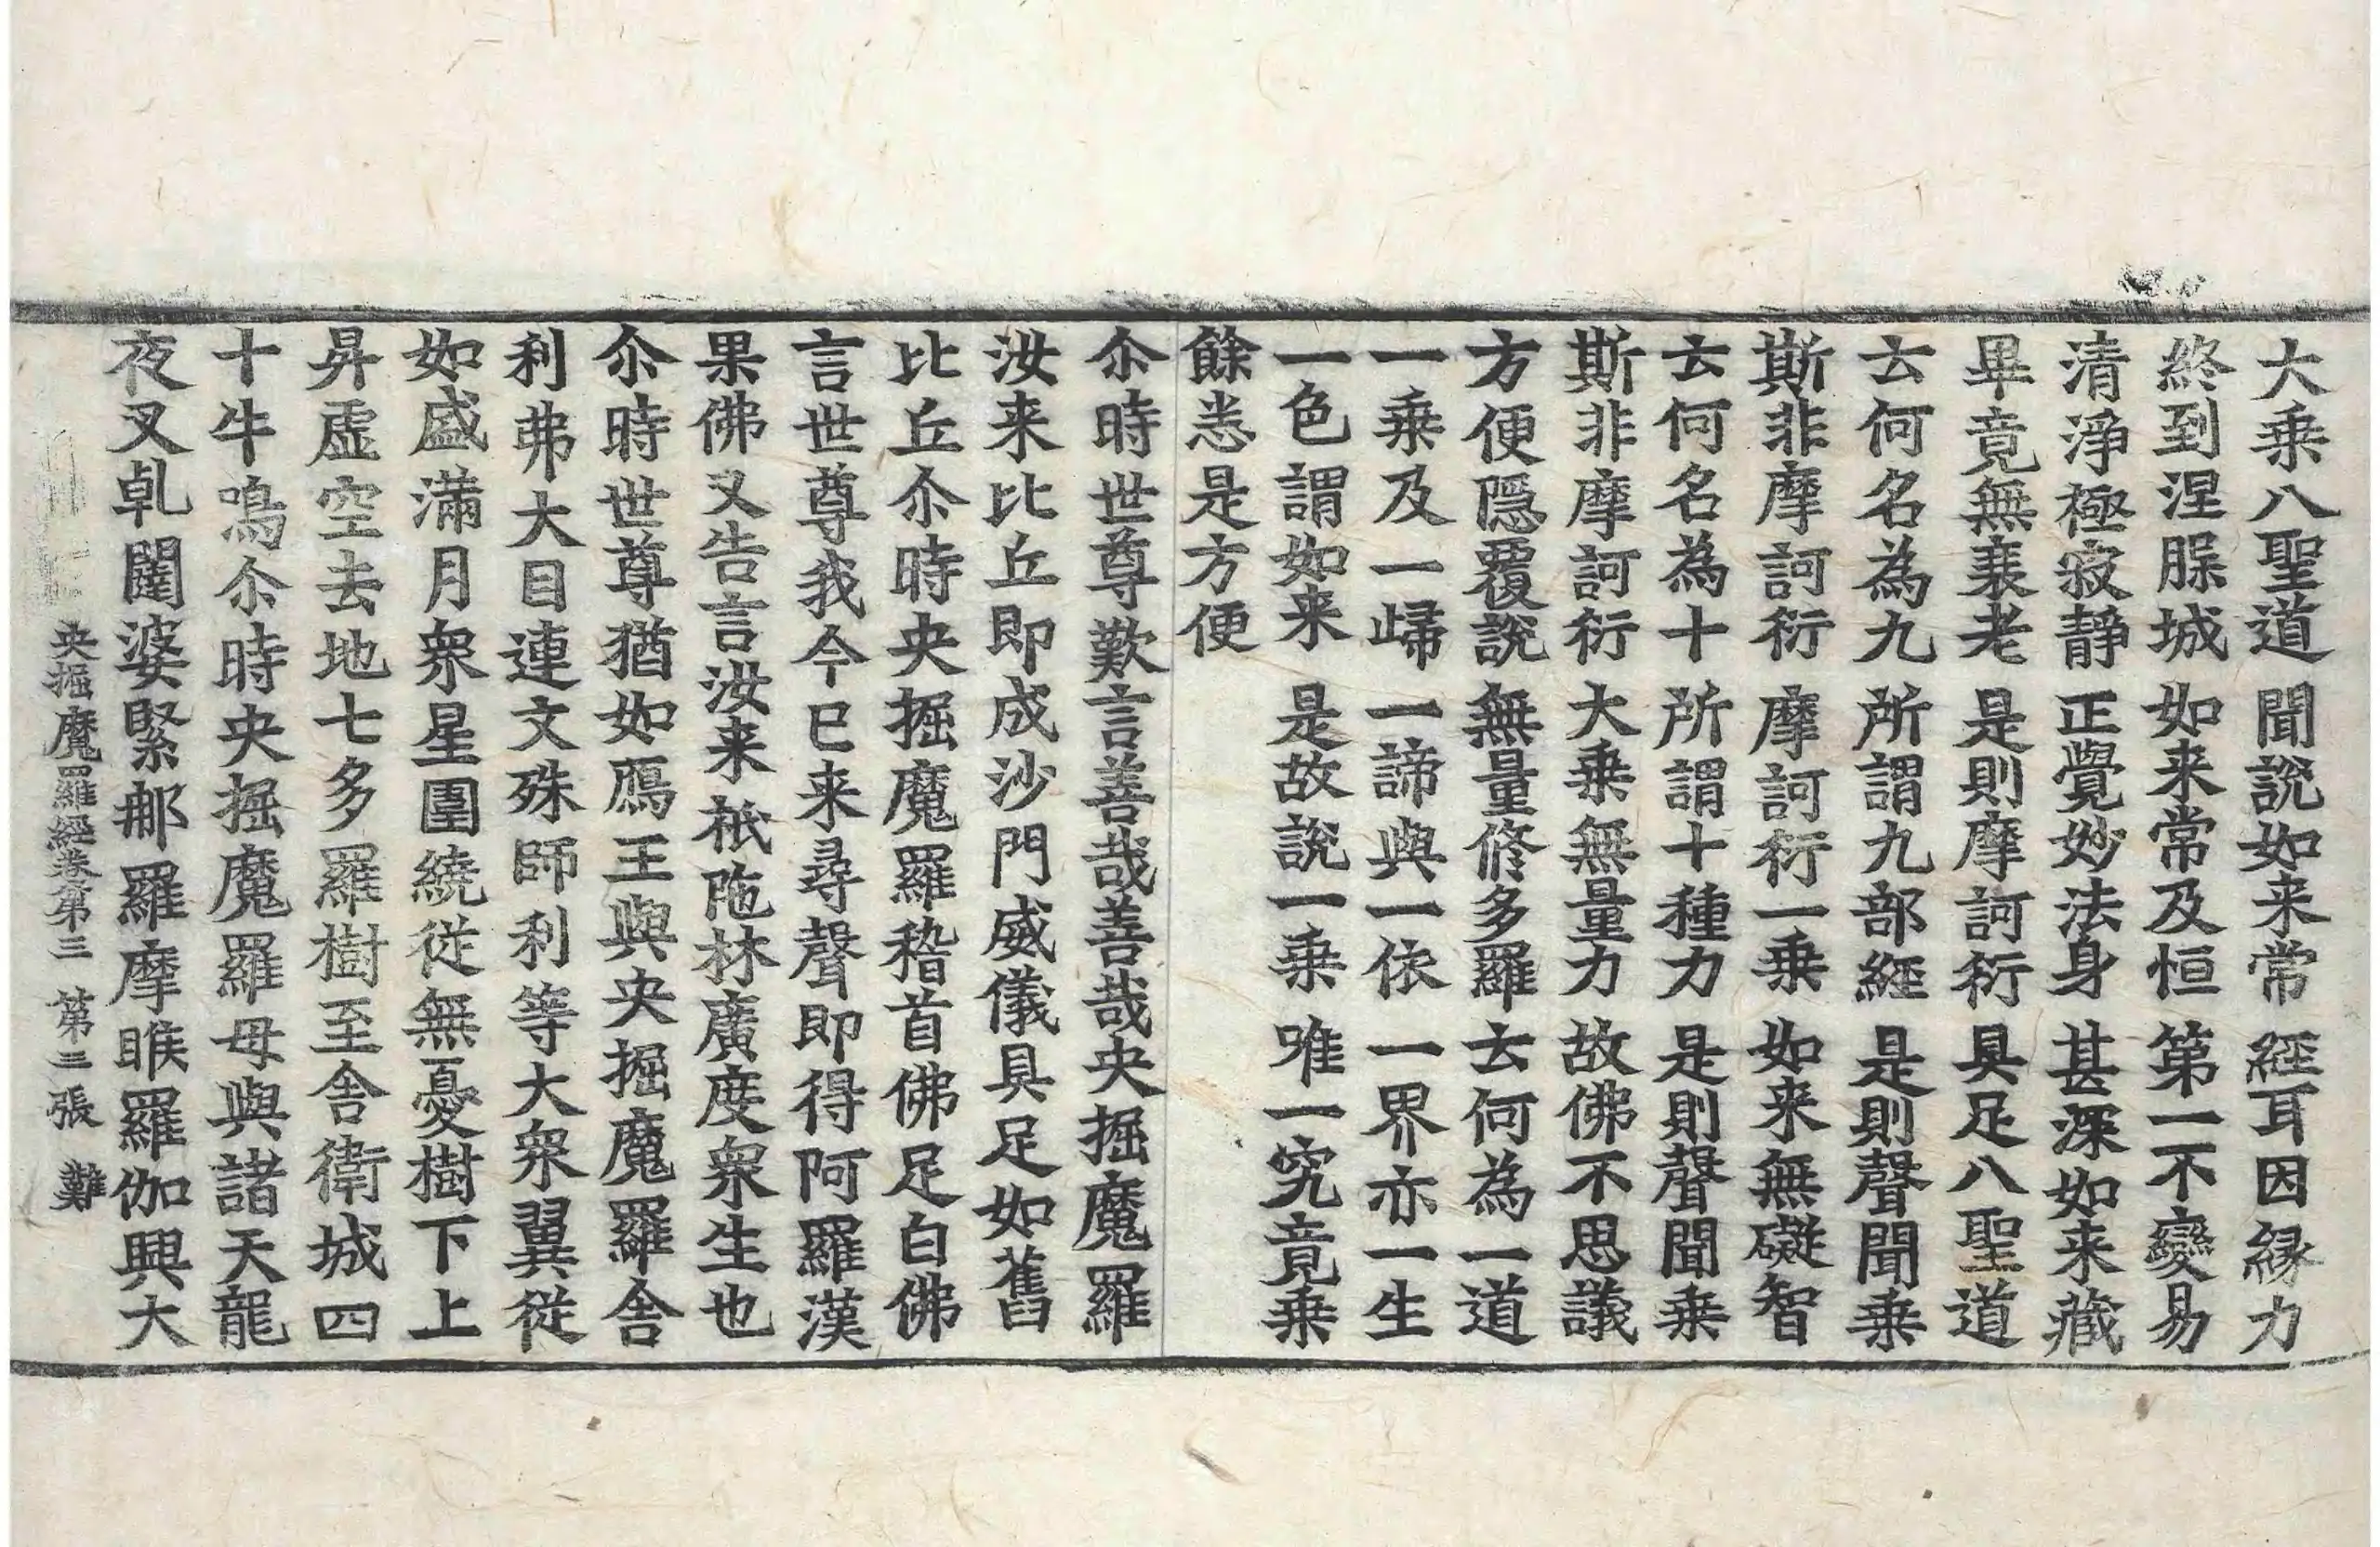 大乗八聖道 聞說如来常 經耳因縁力
終到涅脲城 如来常及恒 第一不變易
清淨極寂靜 正覺妙法身 甚深如来藏
畢竟無衰老 是則摩訶衍 具足八聖道
云何名為九 所謂九部經 是則聲聞乗
斯非摩訶衍 摩訶衍一乗 如来無礙智
云何名為十 所謂十種力 是則聲聞乗
斯非摩訶衍 大乗無量力 故佛不思議
方便隠覆說 無量修多羅 云何為一道
一乗及一歸 一諦與一依 一界亦一生
一色謂如来 是故說一乗 唯一究竟乗
餘悉是方便
尒時世尊歎言善哉善哉央掘魔羅
汝来比丘即成沙門威儀具足如舊
比丘尒時央掘魔羅稽首佛足白佛
言世尊我今已来尋聲即得阿羅漢
果佛又告言汝来祇陁林廣度衆生也
尒時世尊猶如鴈王與央掘魔羅舎
利弗大目連文殊師利等大衆翼従
如盛滿月衆星圍繞従無憂樹下上
昇虛空去地七多羅樹至舎衛城四
十牛鳴尒時央掘魔羅母與諸天龍
夜叉乹闥婆緊那羅摩睺羅伽興大
央掘魔羅經卷第三 第三張 難